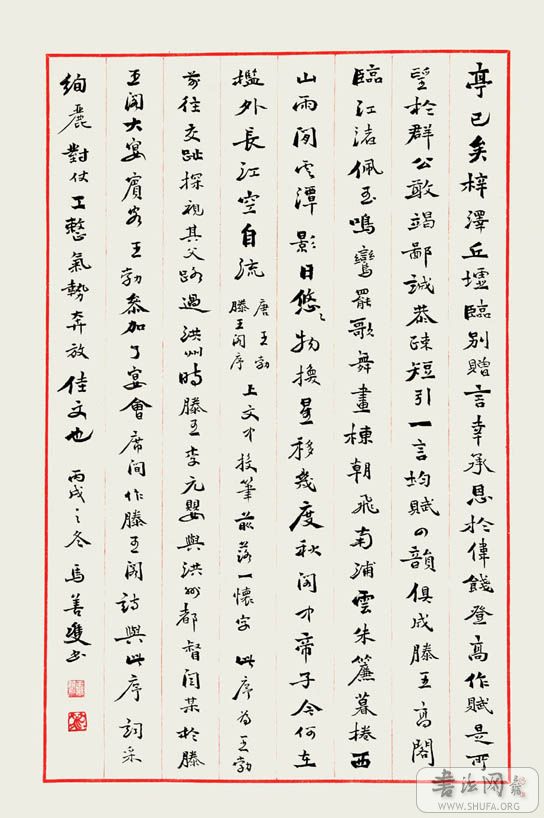 亭已矣梓澤丘墟臨別贈言幸承恩於偉餞登高作賦是所
望於群公敢竭鄙誠恭疎短引一言均賦四韻俱成滕王高閣
臨江渚佩玉鳴鸞罷歌舞畫棟朝飛南浦雲朱簾暮捲西
山雨閑雲潭影日悠々物換星移幾度秋閣中帝子今何在
檻外長江空自流
唐王勃
滕王閣序
上文中投筆前落一懷字此序為王勃
前往交趾探視其父路過洪州時滕王李元嬰與洪州都督閻某於滕
王閣大宴賓客王勃參加了宴會席间作滕王閣詩與此序詞采
絢麗對仗工整氣勢奔放佳文也
丙戌之冬馬善雙書
书法网
WWW.SHUFA.ORG